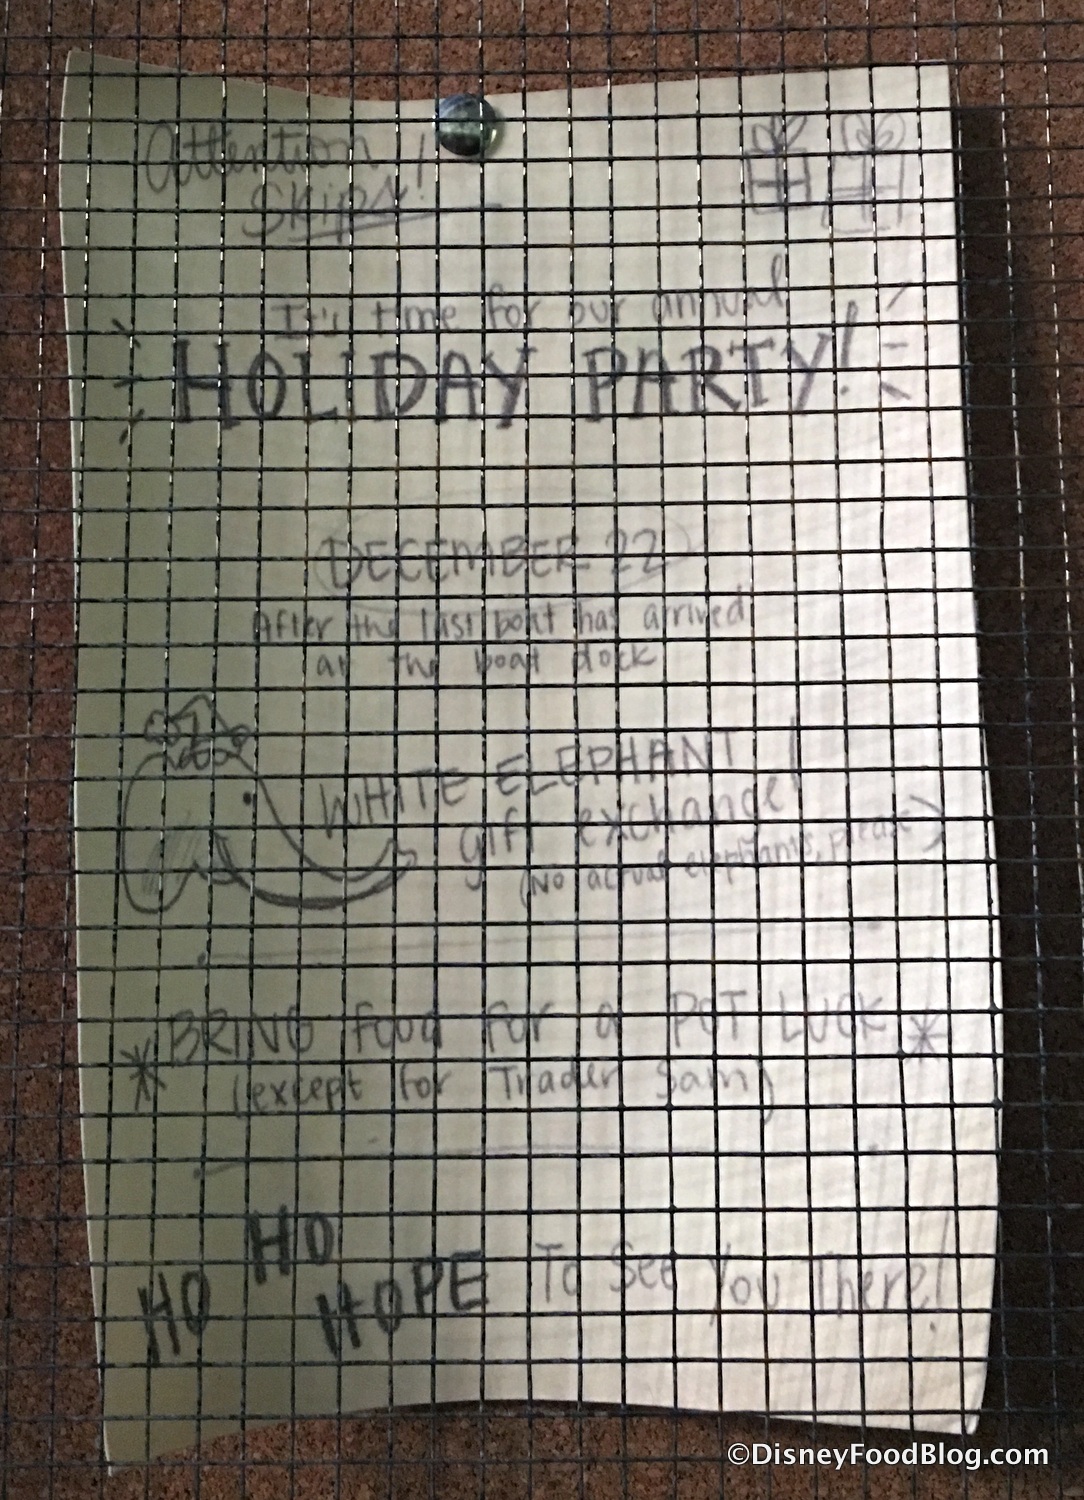 Attention
Skips!
It's time for our annual
HOLIDAY PARTY!
DECEMBER 22
After the last boat has arrived
at the boat dock
WHITE ELEPHANT
gift exchange!
(No actual elephants, please)
*BRING food for a POT LUCK*
(except for Trader Sam)
HO HO HOPE To See You There!
©DisneyFoodBlog.com